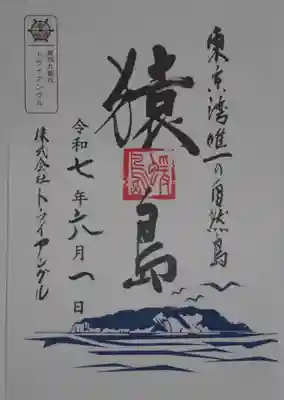 東京湾唯一の自然島
猿島
令和七年六月一日
株式会社トライアングル
トライアングル